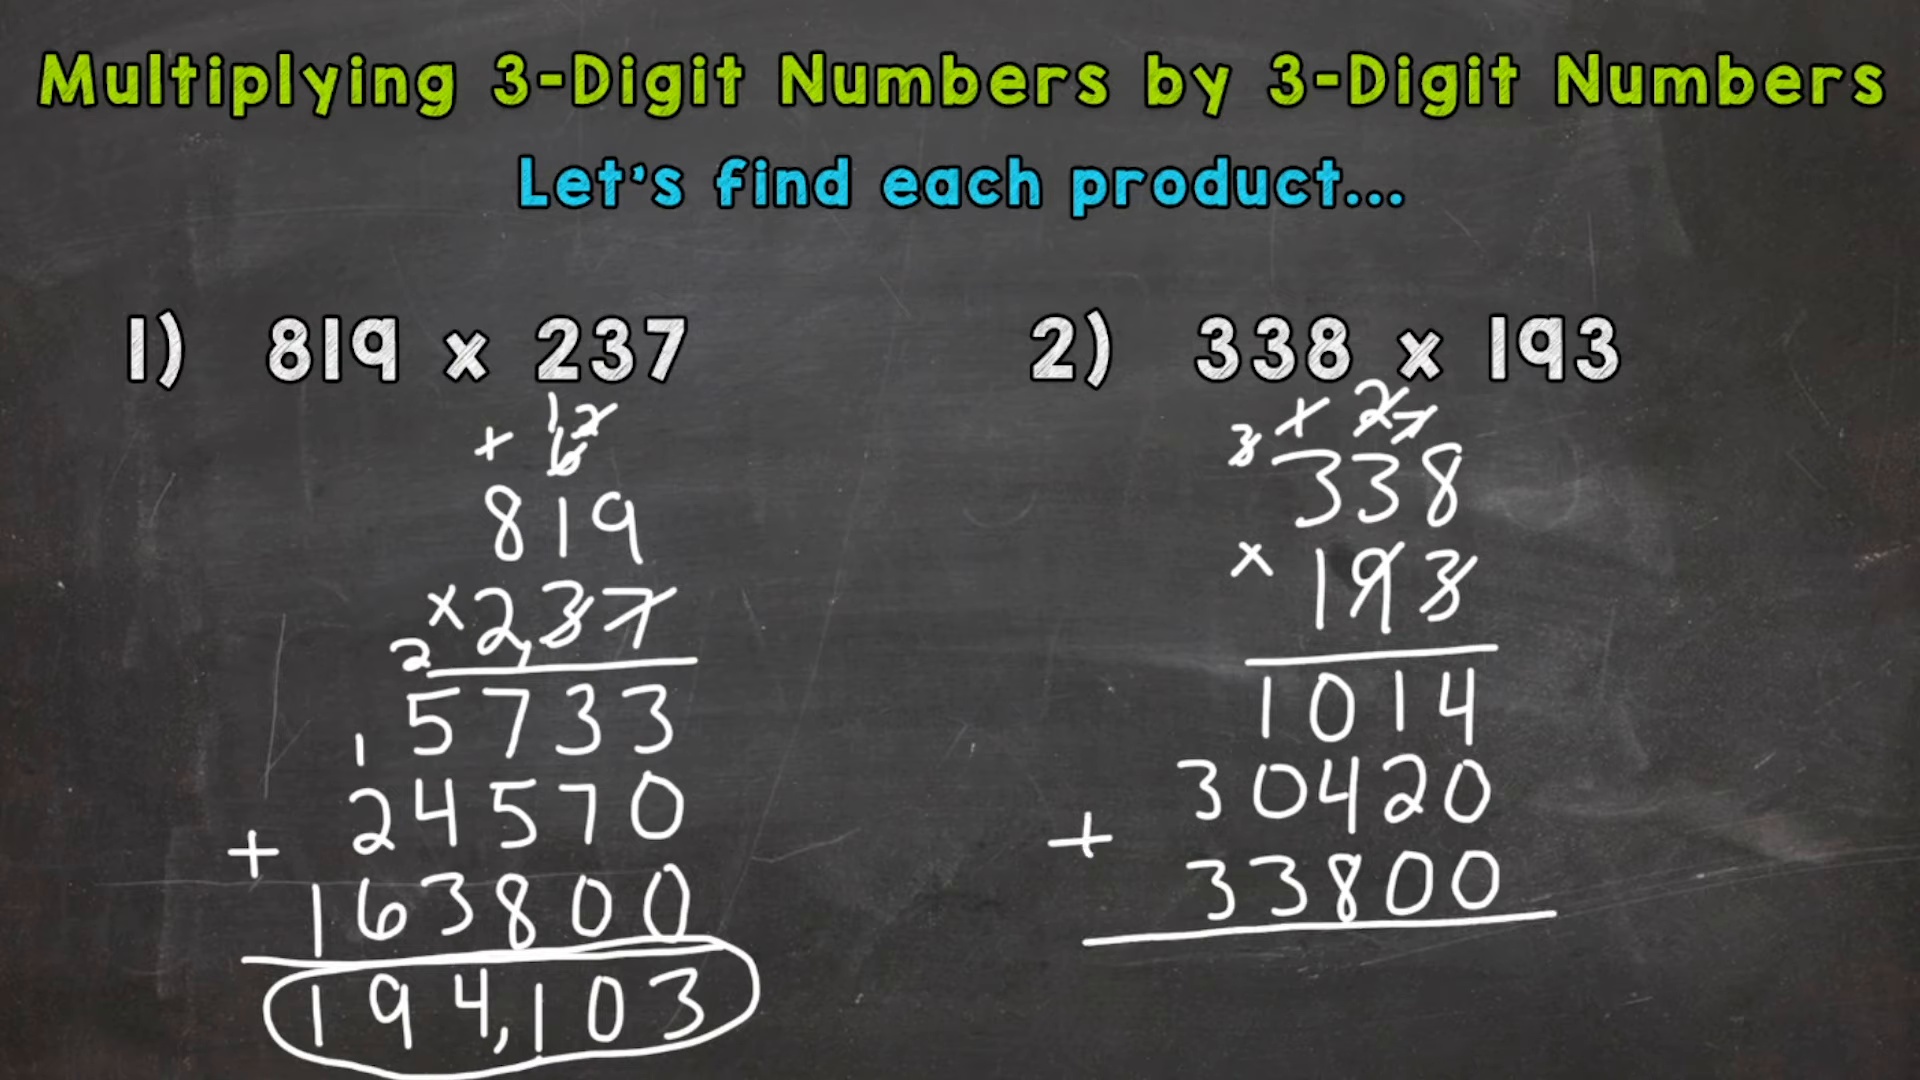 Multiplying 3-Digit Numbers by 3-Digit Numbers
Let's find each product...
1) 819 x 237
1 2
+ 6
819
x 2,37
2
5733
1
24570
+
163800
194,103
2) 338 x 193
1 2 7
3
338
x 193
1014
30420
+
33800